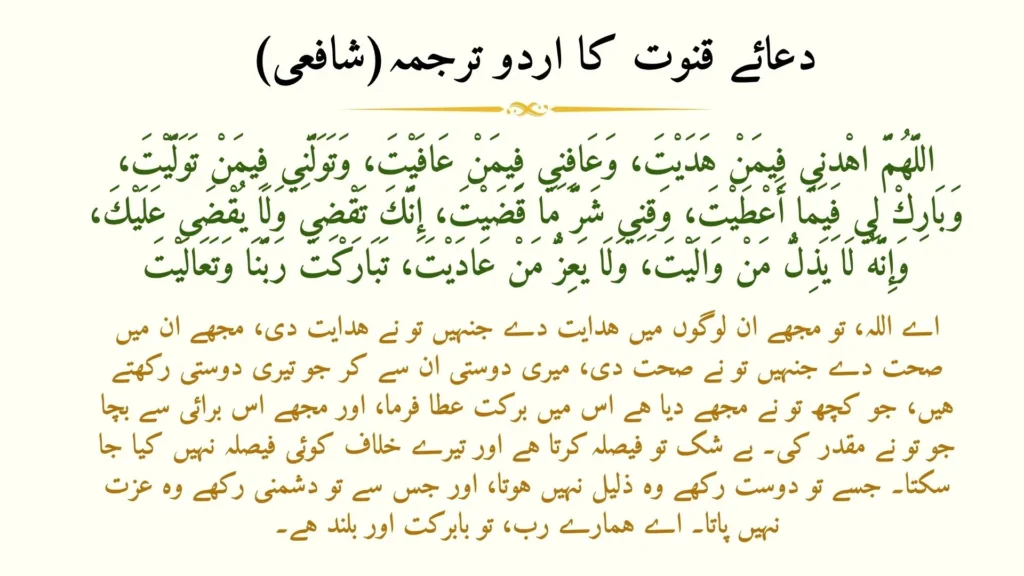 دعائے قنوت کا اردو ترجمہ (شافعی)
اللَّهُمَّ اهْدِنِي فِيمَنْ هَدَيْتَ، وَعَافِنِي فِيمَنْ عَافَيْتَ، وَتَوَلَّنِي فِيمَنْ تَوَلَّيْتَ،
وَبَارِكْ لِي فِيمَا أَعْطَيْتَ، وَقِنِي شَرَّ مَا قَضَيْتَ، إِنَّكَ تَقْضِي وَلَا يُقْضَى عَلَيْكَ،
وَإِنَّهُ لَا يَذِلُّ مَنْ وَالَيْتَ، وَلَا يَعِزُّ مَنْ عَادَيْتَ، تَبَارَكْتَ رَبَّنَا وَتَعَالَيْتَ
اے اللہ، تو مجھے ان لوگوں میں ھدایت دے جنہیں تو نے ھدایت دی، مجھے ان میں
صحت دے جنہیں تو نے صحت دی، میری دوستی ان سے کر جو تیری دوستی رکھتے
ہیں، جو کچھ تو نے مجھے دیا ہے اس میں برکت عطا فرما، اور مجھے اس برائی سے بچا
جو تو نے مقدر کی۔ بے شک تو فیصلہ کرتا ہے اور تیرے خلاف کوئی فیصلہ نہیں کیا جا
سکتا۔ جسے تو دوست رکھے وہ ذلیل نہیں ہوتا، اور جس سے تو دشمنی رکھے وہ عزت
نہیں پاتا۔ اے ہمارے رب، تو بابرکت اور بلند ہے۔